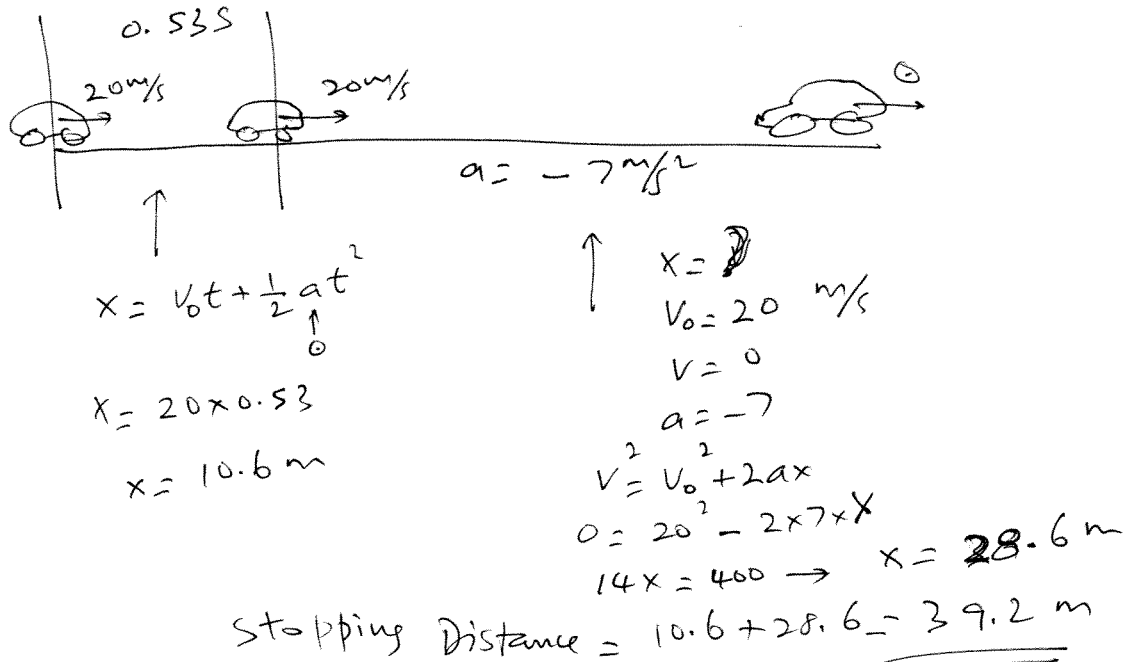 0.53 S
20 m/s
20 m/s
0
a = - 7 m/s²
x = V₀t + ½ at²
0
x = 20 x 0.53
x = 10.6 m
x = ?
V₀ = 20 m/s
V = 0
a = -7
V² = V₀² + 2ax
0 = 20² - 2x7xX
14X = 400 → x = 28.6 m
Stopping Distance = 10.6 + 28.6 = 39.2 m